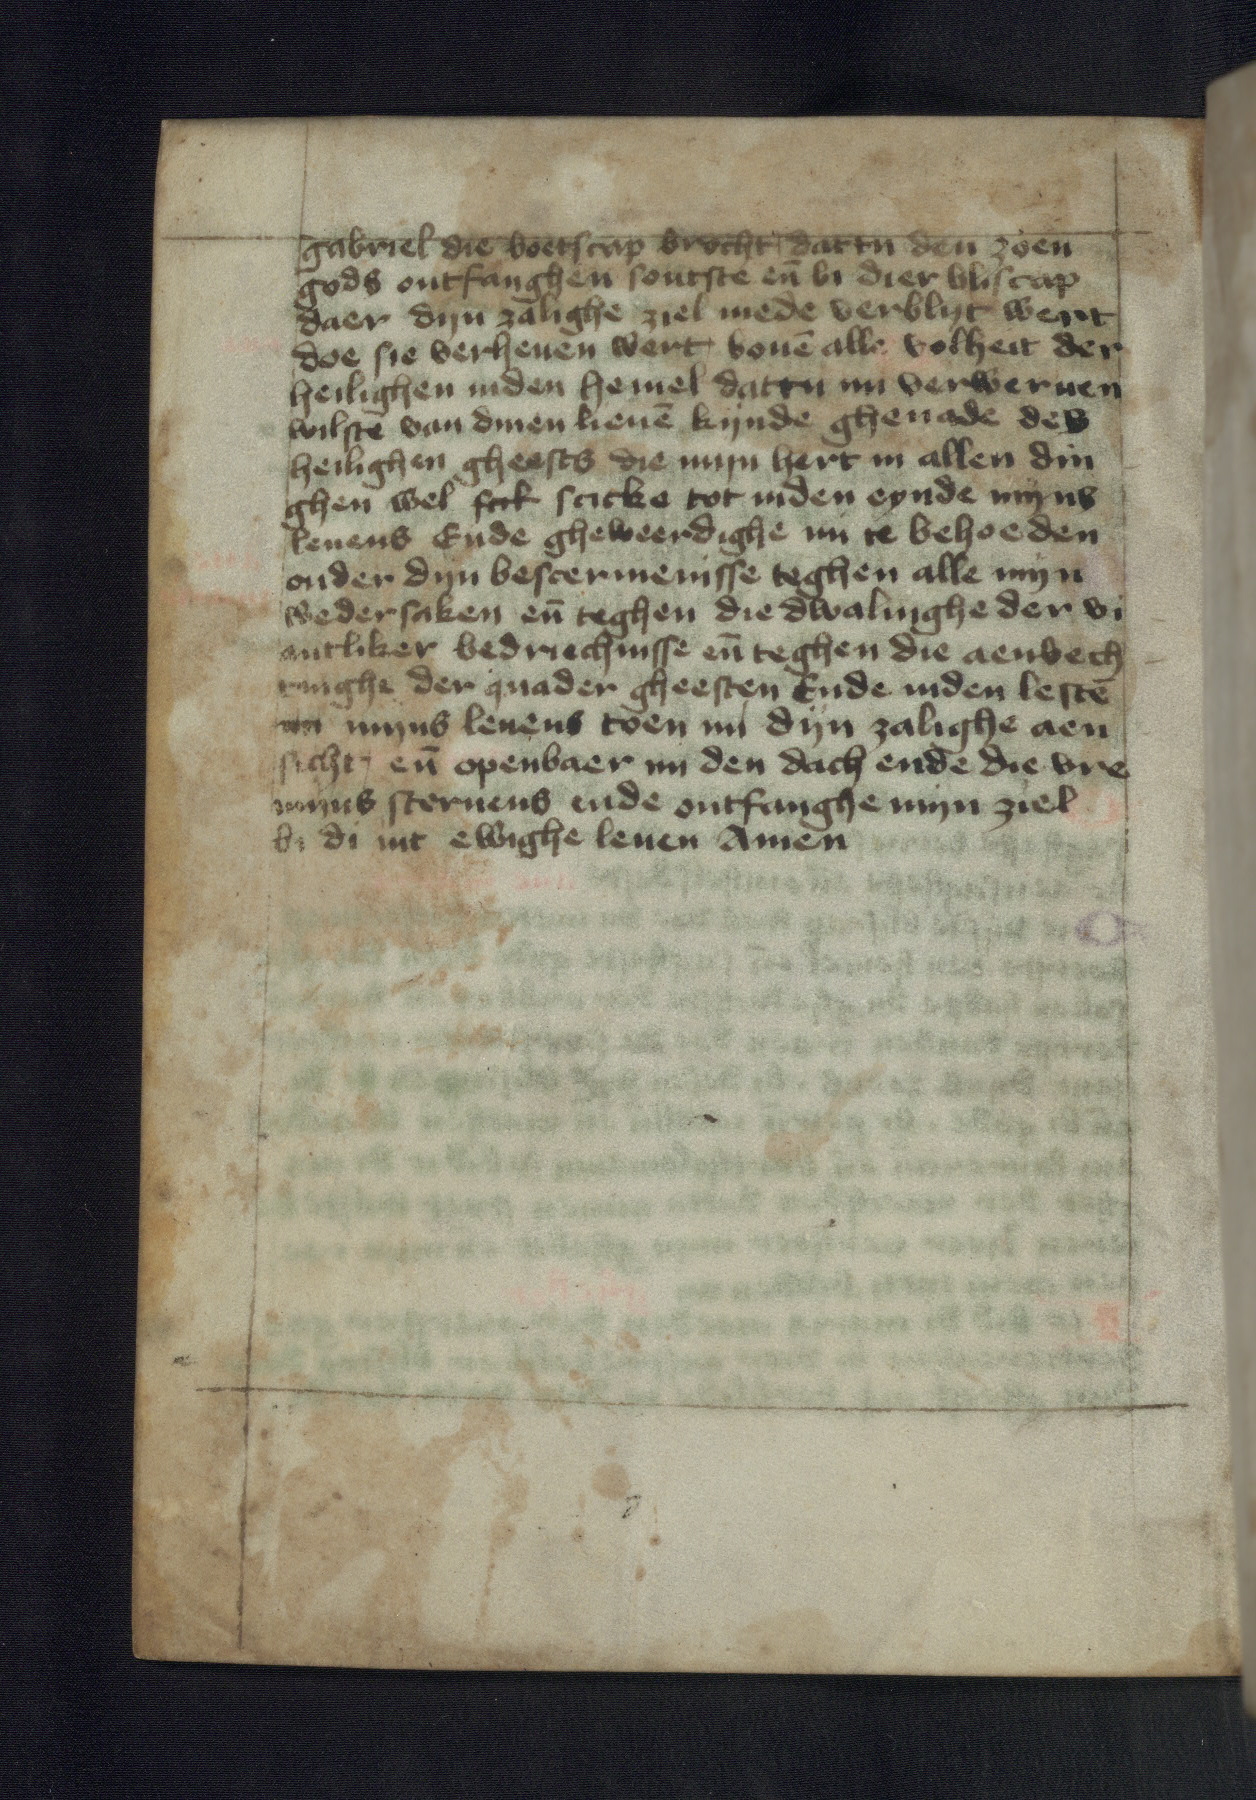 gabriel die boetscap brocht dattu den zoen
gods ontfanghen soutste en̄ bi dier bliscap
daer dyn zalighe ziel mede verblijt wert
doe sie verheuen wert bouē alle volheit der
heilighen inden hemel dattu mi verweruen
wilste van dinen lieuē kijnde ghenade des
heilighen gheests die mijn hert in allen din
ghen wel scicke tot inden eynde mijns
leuens Ende gheweerdighe mi te behoeden
onder dyn bescermenisse teghen alle mijn
wedersaken en̄ teghen die dwalinghe der vi
antliker bedriechnisse en̄ teghen die aenvech
tinghe der quader gheesten Ende inden lestē
mijns leuens toen mi dijn zalighe aen
sicht en̄ openbaer mi den dach ende die vre
mijns steruens ende ontfanghe mijn ziel
bi di int ewighe leuen Amen